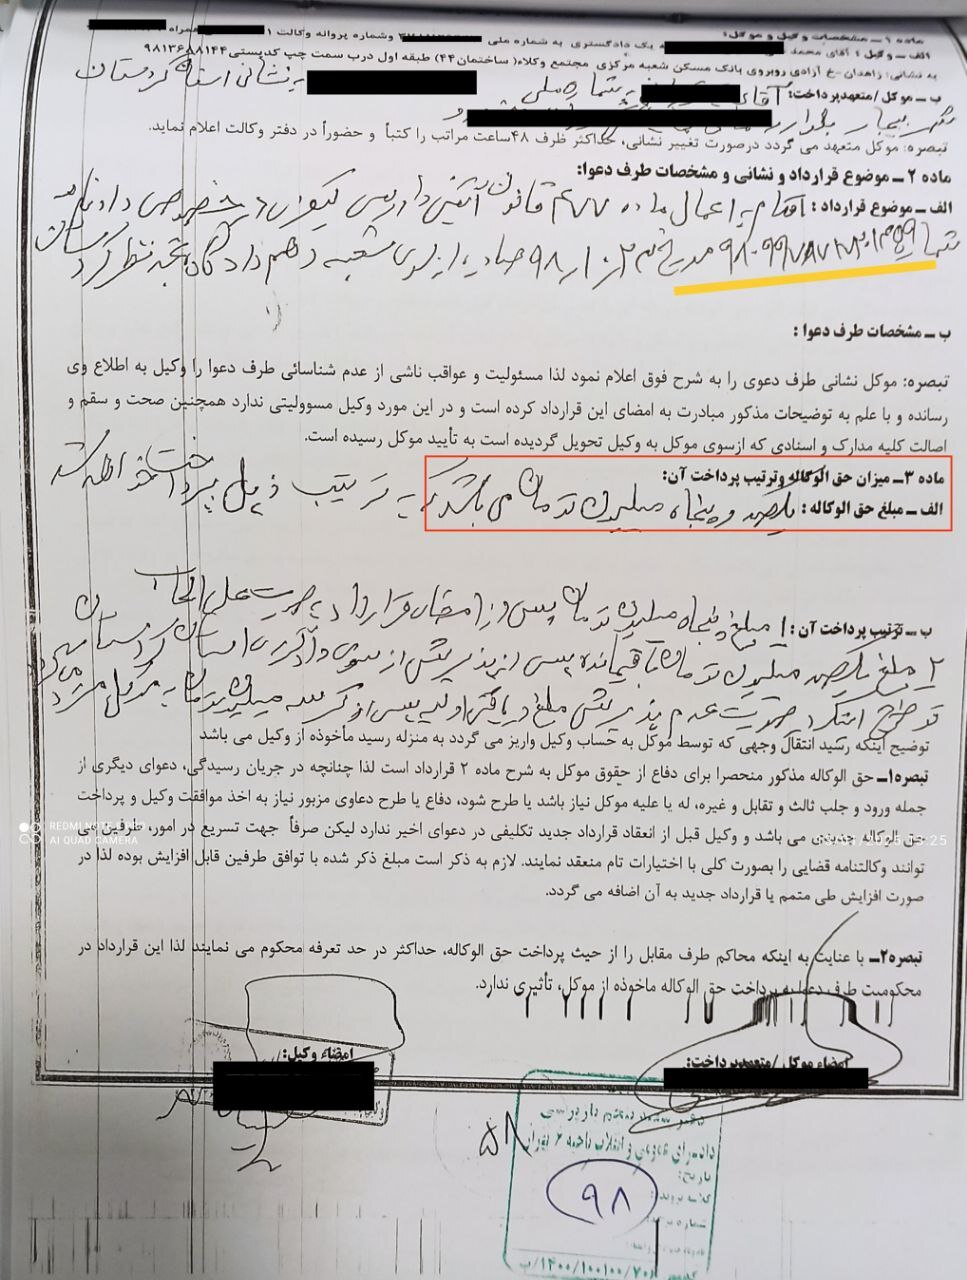 ماده ۱ ـ مشخصات وکیل و موکل:
الف ـ وکیل : آقای محمد یک دادگستری به شماره ملی وشماره پروانه وکالت همراه
به نشانی: زاهدان-خ آزادی روبروی بانک مسکن شعبه مرکزی مجتمع وکلاء( ساختمان۴۴) طبقه اول درب سمت چپ کدپستی۹۸۱۳۶۸۸۱۴۴
ب ـ موکل /متعهدپرداخت: آقای به شماره ملی به نشانی استان کردستان
تبصره: موکل متعهد می گردد درصورت تغییر نشانی، حداکثر ظرف ۴۸ساعت مراتب را کتباً و حضوراً در دفتر وکالت اعلام نماید.
ماده ۲ ـ موضوع قرارداد و نشانی و مشخصات طرف دعوا:
الف ـ موضوع قرارداد : اقدام به اعمال ماده ۴۷۷ قانون آئین دادرسی کیفری در خصوص دادنامه
شماره مورخ ۹۸ صادره از سوی شعبه دهم دادگاه تجدید نظر کردستان
ب ـ مشخصات طرف دعوا :
تبصره: موکل نشانی طرف دعوی را به شرح فوق اعلام نمود لذا مسئولیت و عواقب ناشی از عدم شناسائی طرف دعوا را وکیل به اطلاع وی
رسانده و با علم به توضیحات مذکور مبادرت به امضای این قرارداد کرده است و در این مورد وکیل مسوولیتی ندارد همچنین صحت و سقم و
اصالت کلیه مدارک و اسنادی که ازسوی موکل به وکیل تحویل گردیده است به تأیید موکل رسیده است.
ماده ۳ـ میزان حق الوکاله وترتیب پرداخت آن:
الف ـ مبلغ حق الوکاله : یکصد و پنجاه میلیون تومان می باشد که به ترتیب ذیل پرداخت خواهد شد
ب ـ ترتیب پرداخت آن : ۱ مبلغ پنجاه میلیون تومان پس از امضای قرارداد بصورت علی الحساب
۲ مبلغ یکصد میلیون تومان باقیمانده پس از پذیرش از سوی دادگستری استان کردستان
در صورت عدم پذیرش مبلغ دریافتی اولیه پس از کسر سه میلیون تومان به موکل مسترد می گردد
توضیح اینکه رسید انتقال وجهی که توسط موکل به حساب وکیل واریز می گردد به منزله رسید مأخوذه از وکیل می باشد
تبصره۱ـ حق الوکاله مذکور منحصرا برای دفاع از حقوق موکل به شرح ماده ۲ قرارداد است لذا چنانچه در جریان رسیدگی، دعوای دیگری از
جمله ورود و جلب ثالث و تقابل و غیره، له یا علیه موکل نیاز باشد یا طرح شود، دفاع یا طرح دعاوی مزبور نیاز به اخذ موافقت وکیل و پرداخت
حق الوکاله جدیدی می باشد و وکیل قبل از انعقاد قرارداد جدید تکلیفی در دعوای اخیر ندارد لیکن صرفاً جهت تسریع در امور، طرفین می
توانند وکالتنامه قضایی را بصورت کلی با اختیارات تام منعقد نمایند. لازم به ذکر است مبلغ ذکر شده با توافق طرفین قابل افزایش بوده لذا در
صورت افزایش طی متمم یا قرارداد جدید به آن اضافه می گردد.
REDMI NOTE
AI QUAD CAMERA
تبصره۲ـ با عنایت به اینکه محاکم طرف مقابل را از حیث پرداخت حق الوکاله، حداکثر در حد تعرفه محکوم می نمایند لذا این قرارداد در
محکومیت طرف دعوا به پرداخت حق الوکاله ماخوذه از موکل، تأثیری ندارد.
امضاء موکل /متعهد پرداخت:
امضاء وکیل:
۵۸
دادسرای عمومی و انقلاب ناحیه ۶ تهران
تاریخ:
کلاسه پرونده:
۹۸